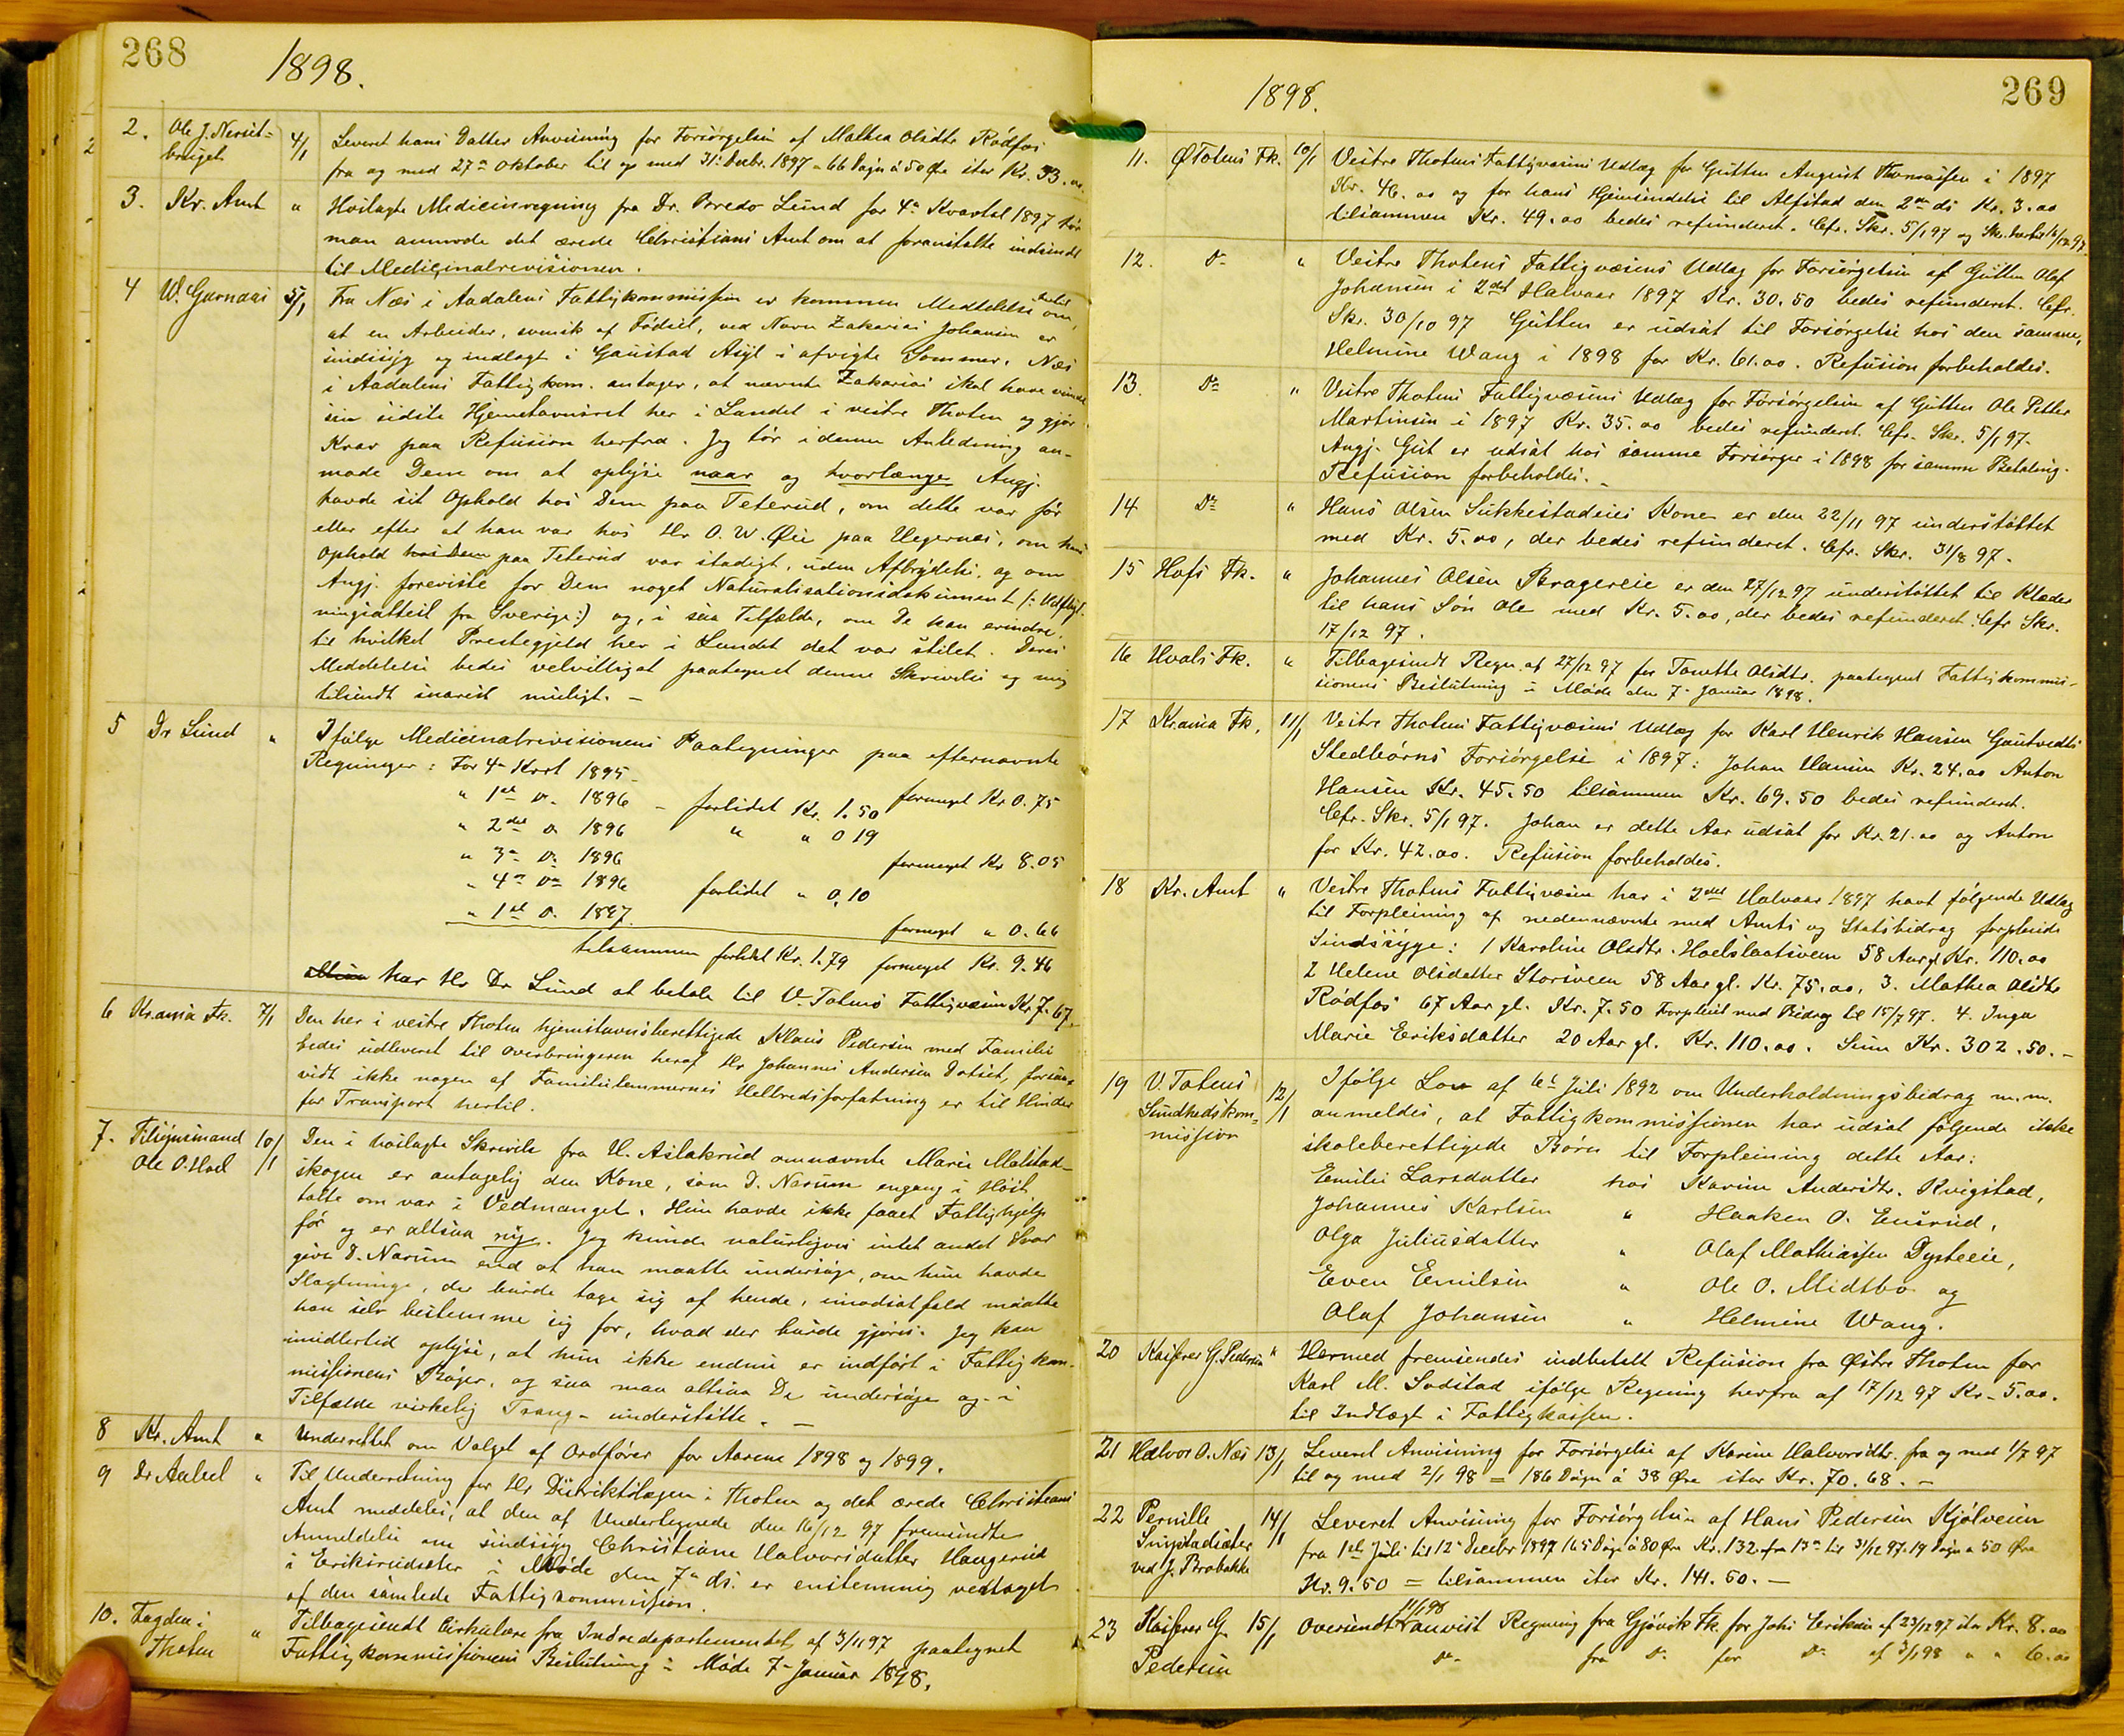 268
1898.
2. Ole J. Nerset- 4/1 Leveret hans Datter Anvisning for Forsørgelsen af Mathea Olsdtr Rødfos
bruget fra og med 27de Oktober til og med 31: Decbr. 1897 = 66 Døgn à 50 Øre stor Kr. 33.00
3. Kr. Amt " Hoslagte Medicinregning fra Dr. Lund for 4de Kvartal 1897 tør
man anmode det ærede Christians Amt om at foranstalte indsendt
til Medicinalrevisionen.
4 W. Garnaas 5/1 Fra Næs i Aadalens Fattigkommission er kommen Meddelelse om,
at en Arbeider, svensk af Fødsel, ved Navn Zakarias Johansen er
sindssyg og indlagt i Gaustad Asyl i afvigte Sommer. Næs
i Aadalens Fattigkom. antager, at nævnte Zakarias skal have
sin sidste Hjemstavnsret her i Landet i vestre Thoten og gjør
Krav paa Refusion herfra. Jeg tør i denne Anledning an-
mode Dem om at oplyse naar og hvorlænge Angj.
havde sit Ophold hos Dem paa Teterud, om dette var før
eller efter at han var hos Hr O. W. Øie paa Hegernæs, om hans
Ophold hos Dem paa Teterud var stadigt, uden Afbrydelse, og om
Angj. foreviste for Dem noget Naturalisationsdokument (: Udflyt-
ningsattest fra Sverige:) og, i saa Tilfælde, om De kan erindre,
til hvilket Prestegjeld her i Landet det var stilet. Deres
Meddelelse bedes velvilligst paategnet denne Skrivelse og mig
tilsendt snarest muligt. —
5 Dr Lund " Ifølge Medicinalrevisionens Paategninger paa efternævnte
Regninger: For 4de Kvrt 1895 formeget Kr 0.75
" 1ste Do 1896 - forlidet Kr. 1.50
" 2det Do 1896 " " 0 19
" 3de Do 1896 formeget Kr 8.05
" 4de Do 1896 forlidet " 0,10
" 1ste Do 1897 formeget " 0.66
tilsammen forlidet Kr. 1.79 formeget Kr. 9.46
har Hr Dr Lund at betale til V. Totens Fattigvæsen Kr 7.67.
6 Kr.ania Fk. 7/1 Den her i vestre Thoten hjemstavnsberettigede Klaus Pedersen med Familie
bedes udleveret til Overbringeren heraf Hr Johannes Andersen Dotset, forsaa-
vidt ikke nogen af Familielemmernes Helbredsforfatning er til Hinder
for Transport hertil.
7. Tilsynsmand 10/1 Den i hoslagte Skrivelse fra H. Aslakrud omnævnte Marie Mælstad-
Ole O. Hoel skogen er antagelig den Kone, som D. Narum engang i Høst
talte om var i Vedmangel. Hun havde ikke faaet Fattighjelp
før og er altsaa ny. Jeg kunde naturligvis intet andet Svar
give D. Narum end at han maatte undersøge, om hun havde
Slægtninge, der burde tage sig af hende, imodsatfald maatte
han selv bestemme sig for, hvad der burde gjøres. Jeg kan
imidlertid oplyse, at hun ikke endnu er indført i Fattigkom-
missionens Bøger, og saa maa altsaa De undersøge og i
Tilfælde virkelig Trang - understøtte. —
8 Kr. Amt " Underrettet om Valget af Ordfører for Aarene 1898 og 1899.
9 Dr " Til Underretning for Hr Distriktslægen i Thoten og det ærede Christians
Amt meddeles, at den af Undertegnede den 16/12 97 fremsendte
Anmeldelse om sindssyg Christiane Halvorsdatter Haugerud
i Møde den 7de ds. er enstemmig vedtaget
af den samlede Fattigkommission.
10. Fogden i " Tilbagesendt Cirkulære fra Indredepartementet af 3/11 97 paategnet
Thoten Fattigkommissionens Beslutning i Møde 7de Januar 1898.
269
1898.
11. ØTotens Fk. 10/1 Vestre Thotens Fattigvæsens Udlæg for Gutten August Thomassen i 1897
Kr. 46.00 og for hans Hjemsendelse til Alfstad den 2den ds Kr. 3.00
tilsammen Kr. 49.00 bedes refunderet. Cfr. Skr. 5/1 97 og Skr. 16/12 97
12. Do " Vestre Thotens Fattigvæsens Udlæg for Forsørgelsen af Gutten Olaf
Johansen i 2det Halvaar 1897 Kr. 30.50 bedes refunderet. Cfr.
Skr. 30/10 97 Gutten er udsat til Forsørgelse hos den samme,
Helmine Wang i 1898 for Kr. 61.00. Refusion forbeholdes.
13. Do " Vestre Thotens Fattigvæsens Udlæg for Forsørgelsen af Gutten Ole Petter
Martinsen i 1897 Kr. 35.00 bedes refunderet. Cfr. Skr. 5/1 97.
Angj. Gut er udsat hos samme Forsørger i 1898 for samme Betaling.
Refusion forbeholdes. -
14 Do " Hans Olsen Sukkestadeies Kone er den 22/11 97 understøttet
med Kr. 5.00, der bedes refunderet. Cfr. Skr. 31/8 97.
15 Hofs Fk. " Johannes Olsen Bragereie er den 27/12 97 understøttet til Klæder
til hans Søn Ole med Kr. 5.00, der bedes refunderet. Cfr Skr.
17/12 97.
16 Hvals Fk. " Tilbagesendt Regn. af 27/12 97 for Tonette Olsdtr. paategnet Fattigkommis-
sionens Beslutning i Møde den 7de Januar 1898.
17 Kr.ania Fk. 11/1 Vestre Thotens Fattigvæsens Udlæg for Karl Henrik Hansen Gautvedts
Stedbørns Forsørgelse i 1897: Johan Hansen Kr. 24.00 Anton
Hansen Kr. 45.50 tilsammen Kr. 69.50 bedes refunderet.
Cfr. Skr. 5/1 97. Johan er dette Aar udsat for Kr. 21.00 og Anton
for Kr. 42.00. Refusion forbeholdes.
18 Kr. Amt " Vestre Thotens Fattigvæsen har i 2det Halvaar 1897 havt følgende Udlæg
til Forpleining af nedennævnte med Amts og Statsbidrag forpleiede
Sindssyge: 1 Karoline Olsdtr. Hoelslaatsveen 58 Aar gl. Kr. 110.00
2 Helene Olsdatter Storsveen 58 Aar gl. Kr. 75.00, 3. Mathea Olsdtr
Rødfos 67 Aar gl. Kr. 7.50 Forpleiet med Bidrag til 15/7 97. 4. Inga
Marie Eriksdatter 20 Aar gl. Kr. 110.00. Sum Kr. 302.50. -
19 V. Totens 12/1 Ifølge Lov af 6te Juli 1892 om Underholdningsbidrag m.m.
Sundhedskom- anmeldes, at Fattigkommissionen har udsat følgende ikke
mission skoleberettigede Børn til Forpleining dette Aar:
Emilie Larsdatter hos Karine Andersdtr. Kvigstad,
Johannes Karlsen " Haaken O. Ensrud,
Olga Juliusdatter " Olaf Mathiassen Dysteeie,
Even Emilsen " Ole O. Midtbo og
Olaf Johansen " Helmine Wang.
20 Kasserer G. Pedersen " Hermed fremsendes indbetalt Refusion fra Østre Thoten for
Karl M. Sodstad ifølge Regning herfra af 17/12 97 Kr. 5.00.
til Indtægt i Fattigkassen.
21 Halvor O. Næs 13/1 Leveret Anvisning for Forsørgelse af Karine Halvorsdtr. fra og med 1/7 97
til og med 2/1 98 = 186 Døgn à 38 Øre stor Kr. 70.68. -
22 Pernille 14/1 Leveret Anvisning for Forsørgelsen af Hans Pedersen Kjølveien
fra 1ste Juli til 12te Decebr 1897 165 Døgn à 80 Øre Kr. 132. fra 13de til 31/12 97. 19 Døgn à 50 Øre
ved J. Brobakke Kr. 9.50 = tilsammen stor Kr. 141.50. -
23 Kasserer G. 15/1 Oversendt 11/1 98 anvist Regning fra Gjøvik Fk. for Johs Eriksen af 23/12 97 stor Kr. 8.00
Pedersen Do fra Do for Do af 3/1 98 " " 6.00